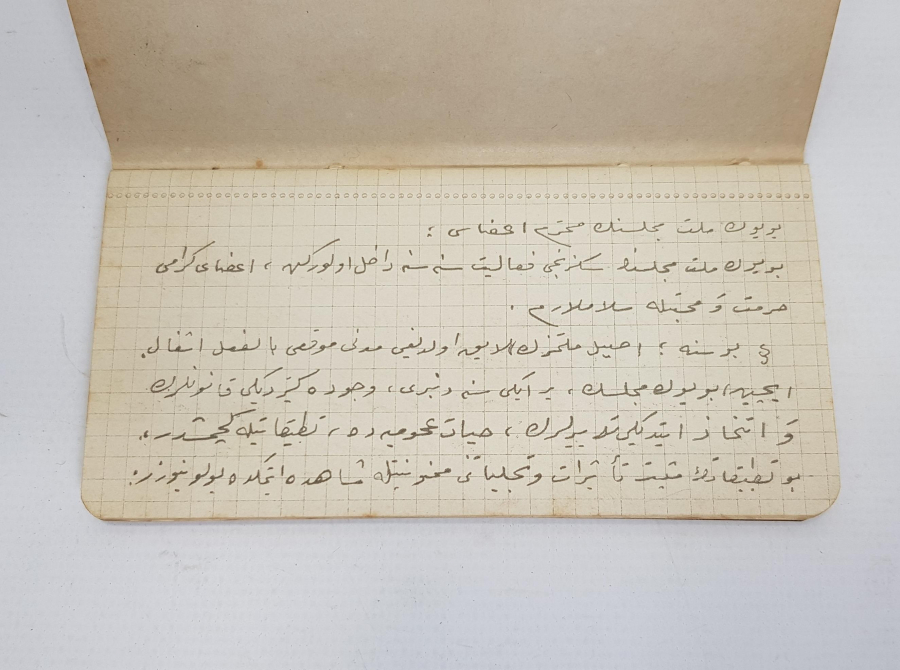 بویوك ملت مجلسنك محترم اعضاسی ؛
بویوك ملت مجلسنك سکزنجی فعالیت سنه سنه داخل اولورکن ، اعضای کرامی
حرمت و محبتله سلاملارم .
بو سنه ؛ اصیل ملتمزك لایق اولدیغی مدنی موقعی بالفعل اشغال
ایچین ، بویوك مجلسك ، بر ایکی سنه دنبری ، وجوده کتیردیکی قانونلرك
و اتخاذ ایتدیکی تدبیرلرك ، حیات عمومیه ده ، تطبیقاتیله کچمشدر .
بو تطبیقاتك مثبت تأثیرات و تجلیاتنی ممنونیتله مشاهده ایتمکده بولونیورز .